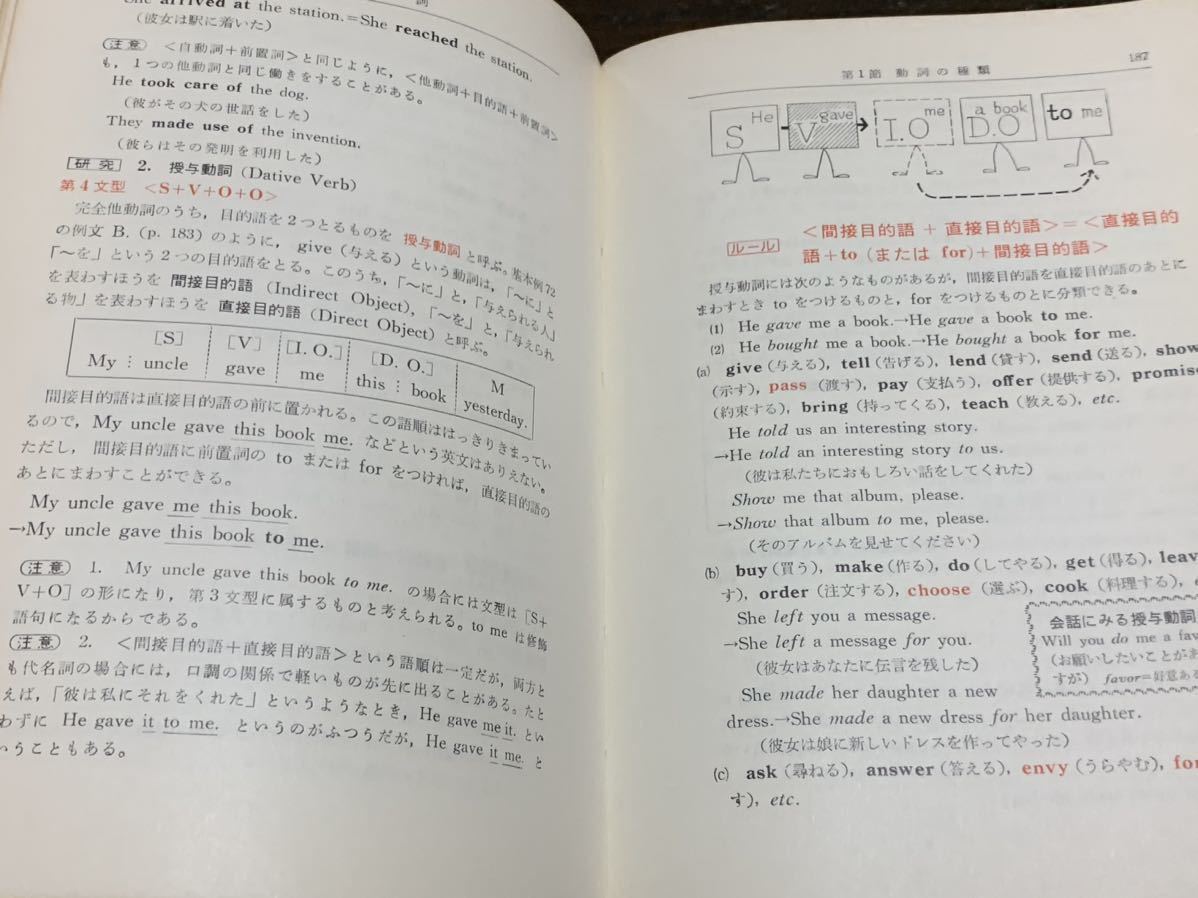 詞
She arrived at the station.＝She reached the station.
(彼女は駅に着いた)
注意 ＜自動詞＋前置詞＞と同じように，＜他動詞＋目的語＋前置詞＞
も，1つの他動詞と同じ働きをすることがある。
He took care of the dog.
(彼がその犬の世話をした)
They made use of the invention.
(彼らはその発明を利用した)
研究 2. 授与動詞 (Dative Verb)
第4文型 ＜S+V+O+O＞
完全他動詞のうち，目的語を2つとるものを 授与動詞 と呼ぶ。基本例72
の例文 B. (p. 183) のように，give (与える) という動詞は，「〜に」と
「〜を」という2つの目的語をとる。このうち，「〜に」と，「与えられる人」
を表わすほうを 間接目的語 (Indirect Object)，「〜を」と，「与えられ
る物」を表わすほうを 直接目的語 (Direct Object) と呼ぶ。
[S] [V] [I. O.] [D. O.] M
My uncle gave me this book yesterday.
間接目的語は直接目的語の前に置かれる。この語順ははっきりきまってい
るので，My uncle gave this book me. などという英文はありえない。
ただし，間接目的語に前置詞の to または for をつければ，直接目的語の
あとにまわすことができる。
My uncle gave me this book.
→My uncle gave this book to me.
注意 1. My uncle gave this book to me. の場合には文型は [S+
V+O] の形になり，第3文型に属するものと考えられる。to me は修飾
語句になるからである。
注意 2. ＜間接目的語＋直接目的語＞という語順は一定だが，両方と
も代名詞の場合には，口調の関係で軽いものが先に出ることがある。たと
えば，「彼は私にそれをくれた」というようなとき，He gave me it. とい
わずに He gave it to me. というのがふつうだが，He gave it me. と
いうこともある。
第1節 動詞の種類 187
S He V gave I.O me D.O a book to me
ルール ＜間接目的語 + 直接目的語＞＝＜直接目的
語＋to (または for)＋間接目的語＞
授与動詞には次のようなものがあるが，間接目的語を直接目的語のあとに
まわすとき to をつけるものと，for をつけるものとに分類できる。
(1) He gave me a book.→He gave a book to me.
(2) He bought me a book.→He bought a book for me.
(a) give (与える), tell (告げる), lend (貸す), send (送る), show
(示す), pass (渡す), pay (支払う), offer (提供する), promise
(約束する), bring (持ってくる), teach (教える), etc.
He told us an interesting story.
→He told an interesting story to us.
(彼は私たちにおもしろい話をしてくれた)
Show me that album, please.
→Show that album to me, please.
(そのアルバムを見せてください)
(b) buy (買う), make (作る), do (してやる), get (得る), leav
す), order (注文する), choose (選ぶ), cook (料理する),
She left you a message.
→She left a message for you.
(彼女はあなたに伝言を残した)
She made her daughter a new
dress.→She made a new dress for her daughter.
(彼女は娘に新しいドレスを作ってやった)
会話にみる授与動詞
Will you do me a fav
(お願いしたいことがあ
すが) favor=好意ある
(c) ask (尋ねる), answer (答える), envy (うらやむ), for
す), etc.